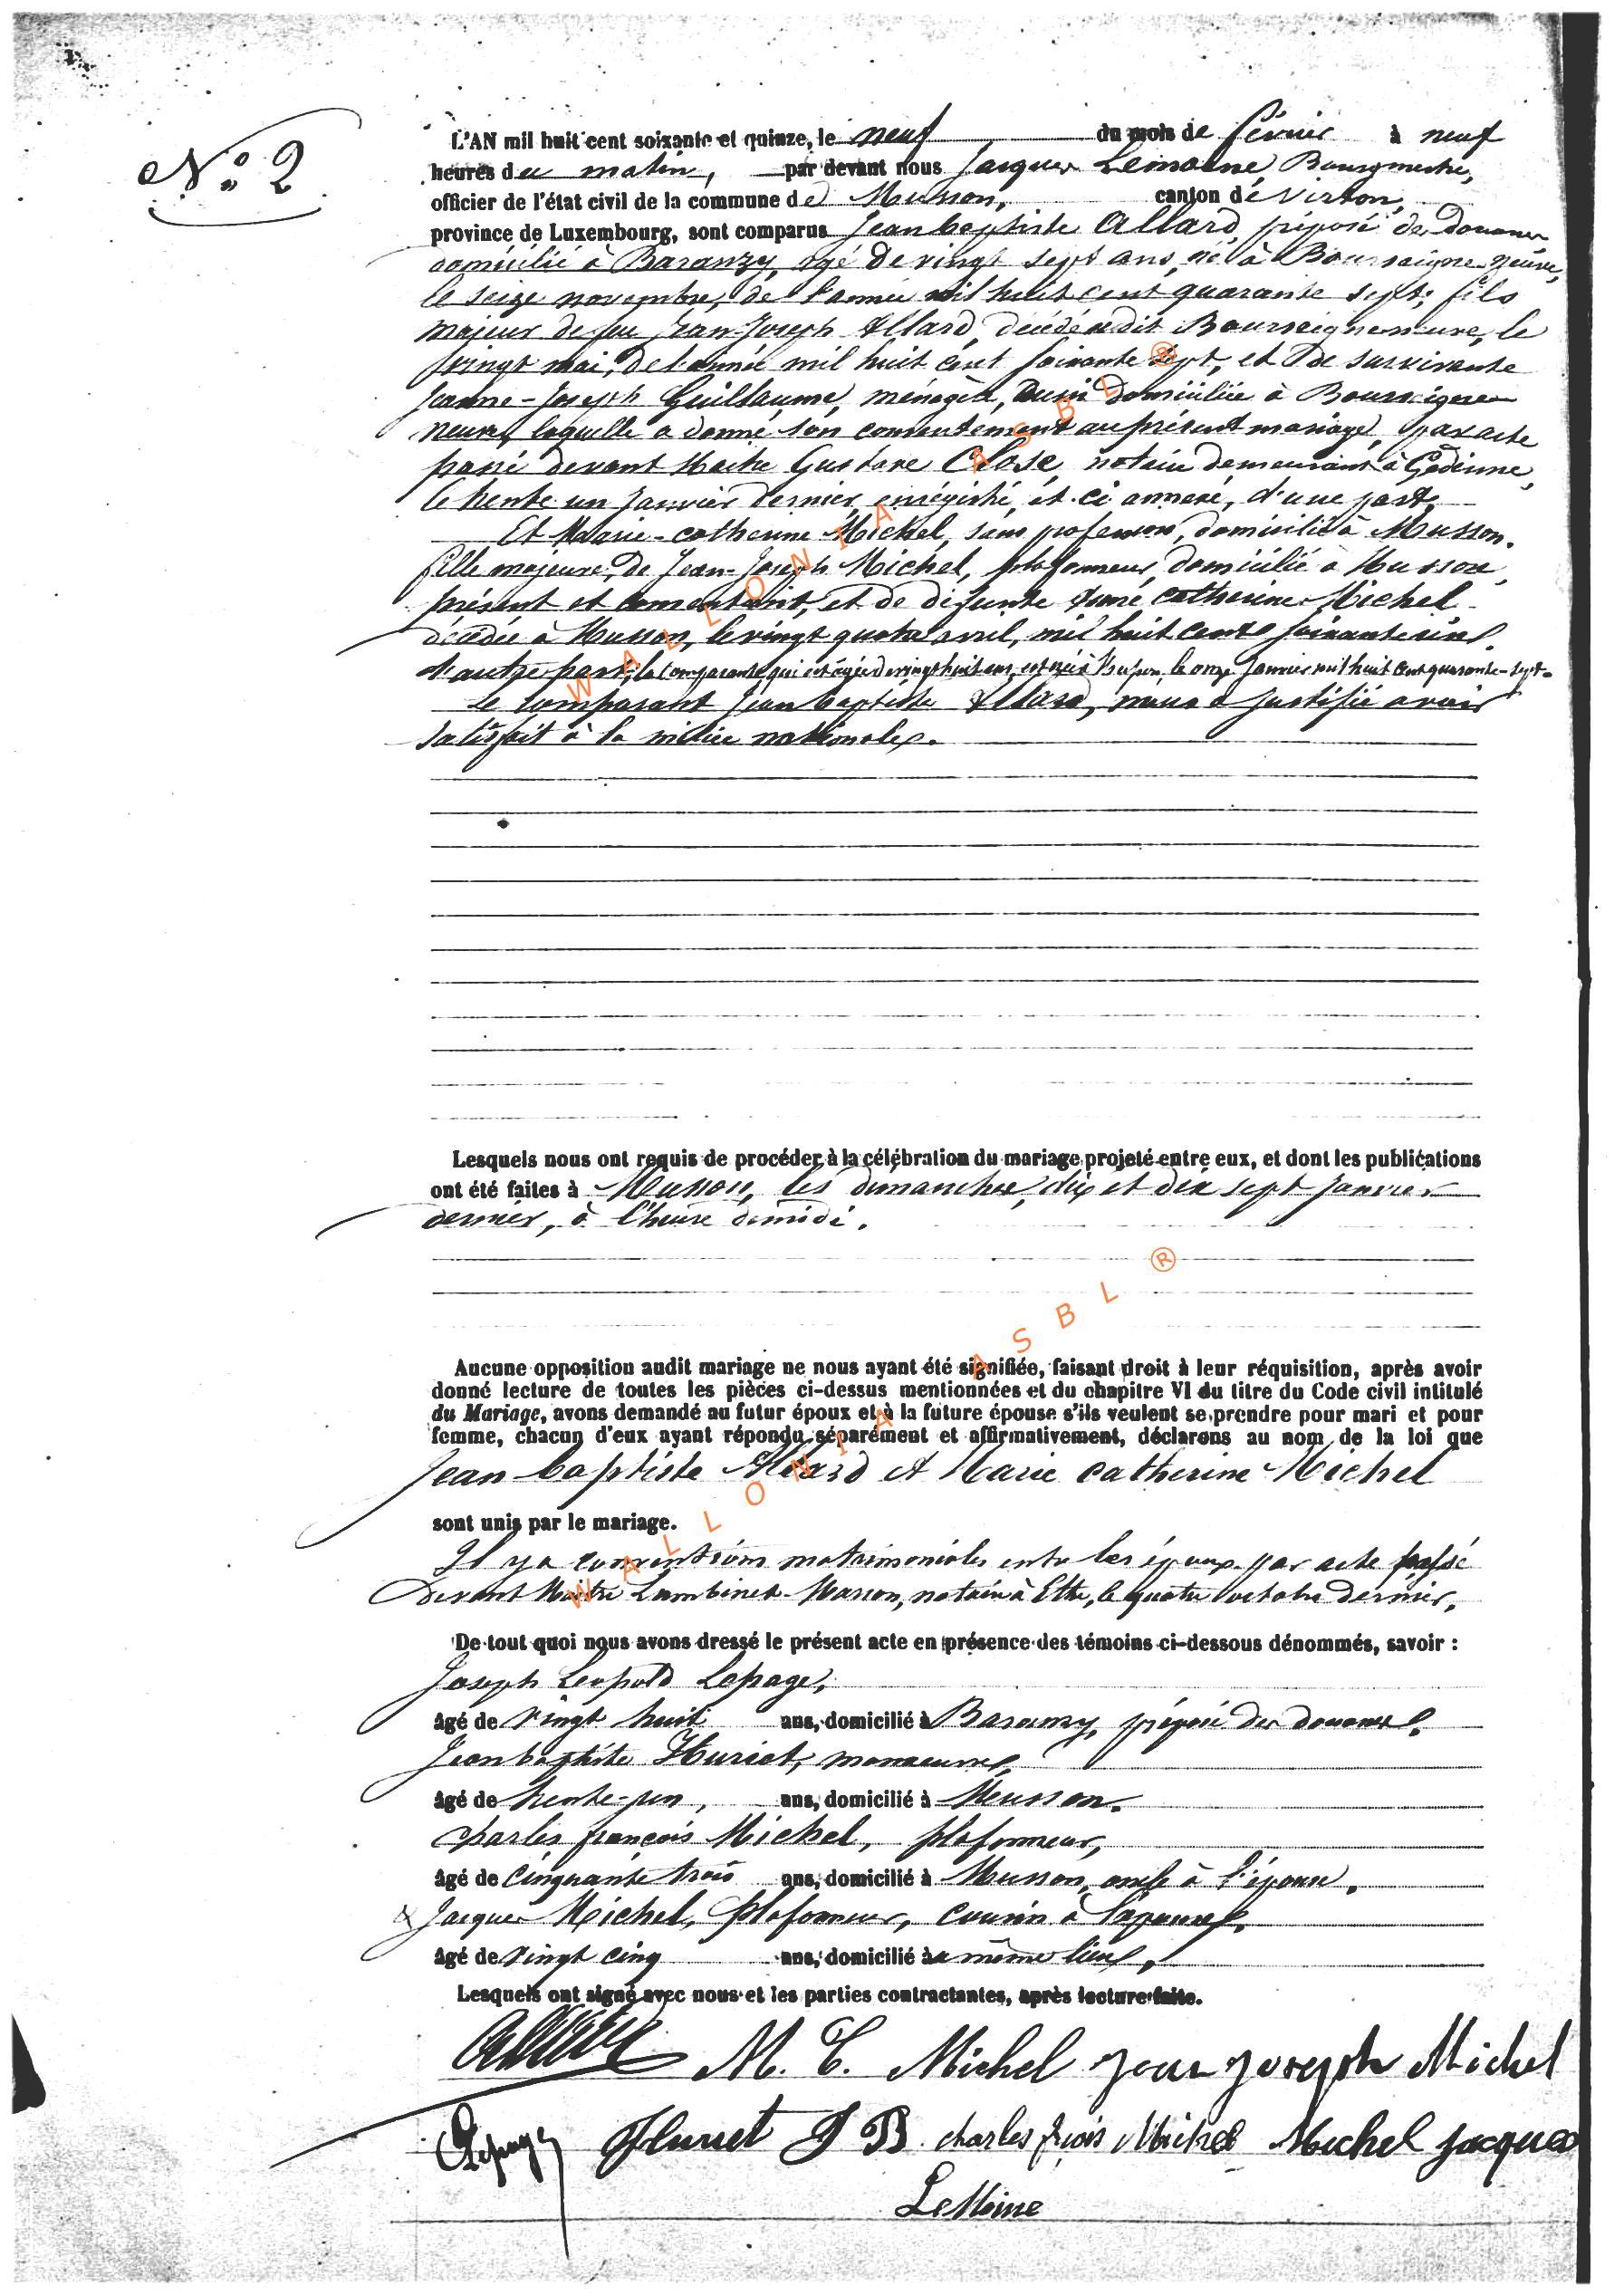 N° 2
L'AN mil huit cent soixante et quinze, le neuf du mois de février à neuf
heures du matin, par devant nous Jacques Lemoine Bourgmestre,
officier de l'état civil de la commune de Musson, canton de Virton,
province de Luxembourg, sont comparus Jean baptiste Allard, préposé des douanes,
domicilié à Baranzy, âgé de vingt sept ans, né à Bourseigne-neuve,
le seize novembre, de l'année mil huit cent quarante sept, fils
majeur de feu Jean-Joseph Allard, décédé audit Bourseigneneuve, le
vingt mai, de l'année mil huit cent soixante sept, et de survivante
Jeanne-Joseph Guillaume, ménagère, aussi domiciliée à Bourseigne
neuve, laquelle a donné son consentement au présent mariage, par acte
passé devant Maitre Gustave Close, notaire demeurant à Gedinne,
le trente un janvier dernier, enrégistré, et ci annexé, d'une part,
Et Marie-catherine Michel, sans profession, domiciliée à Musson.
fille majeure, de Jean-Joseph Michel, plafonneur, domicilié à Musson,
présent et consentant, et de défunte Anne catherine Michel
décédée à Musson, le vingt quatre avril, mil huit cent soixante cinq.
d'autre part, la comparante, qui est âgée de vingt huit ans, est née à Musson, le onze Janvier mil huit cent quarante-sept.
Le comparant Jean baptiste Allard, nous a justifié avoir
satisfait à la milice nationale.
Lesquels nous ont requis de procéder à la célébration du mariage projeté entre eux, et dont les publications
ont été faites à Musson, les dimanches, dix et dix sept janvier
dernier, à l'heure de midi.
Aucune opposition audit mariage ne nous ayant été signifiée, faisant droit à leur réquisition, après avoir
donné lecture de toutes les pièces ci-dessus mentionnées et du chapitre VI du titre du Code civil intitulé
du Mariage, avons demandé au futur époux et à la future épouse s'ils veulent se prendre pour mari et pour
femme, chacun d'eux ayant répondu séparément et affirmativement, déclarons au nom de la loi que
Jean baptiste Allard et Marie catherine Michel
sont unis par le mariage.
Il y a conventions matrimoniales entre les époux par acte passé
devant Maitre Lambinet-Marson, notaire à Ethe, le quatre octobre dernier.
De tout quoi nous avons dressé le présent acte en présence des témoins ci-dessous dénommés, savoir :
Joseph Leopold Lepage,
âgé de vingt huit ans, domicilié à Baranzy, préposé des douanes.
Jean baptiste Huriet, manoeuvre,
âgé de trente-un, ans, domicilié à Musson.
charles françois Michel, plafonneur,
âgé de cinquante trois ans, domicilié à Musson, oncle à l'épouse.
Jacques Michel, plafonneur, cousin à l'épouse,
âgé de vingt cinq ans, domicilié au même lieu.
Lesquels ont signé avec nous et les parties contractantes, après lecture faite.
Allard M. C. Michel Jean Joseph Michel
Lepage Huriet J B charles frçois Michel Michel jacques
LeMoine
WALLONIA ASBL ®
WALLONIA ASBL ®